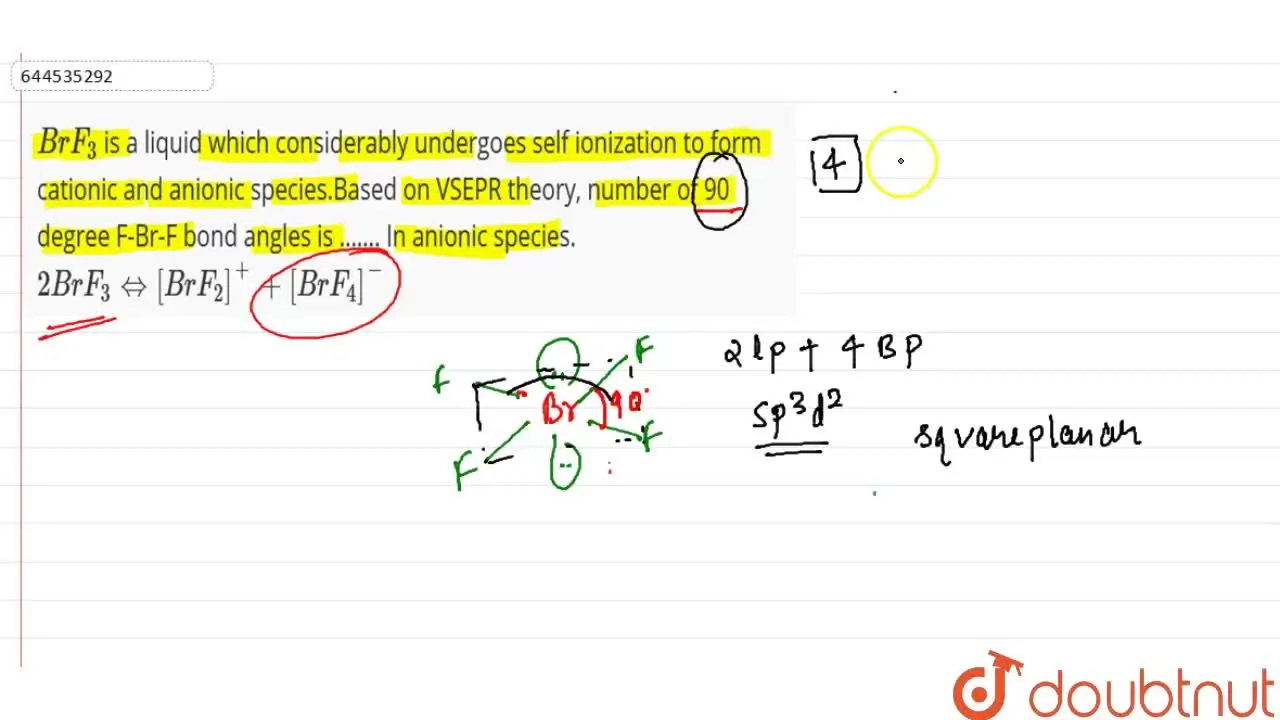 644535292
BrF₃ is a liquid which considerably undergoes self ionization to form
cationic and anionic species.Based on VSEPR theory, number of 90
degree F-Br-F bond angles is ....... In anionic species.
2BrF₃ ⇔ [BrF₂]⁺ + [BrF₄]⁻
4
F F
Br 90°
F F
2lp + 4BP
sp³d²
squareplanar
doubtnut